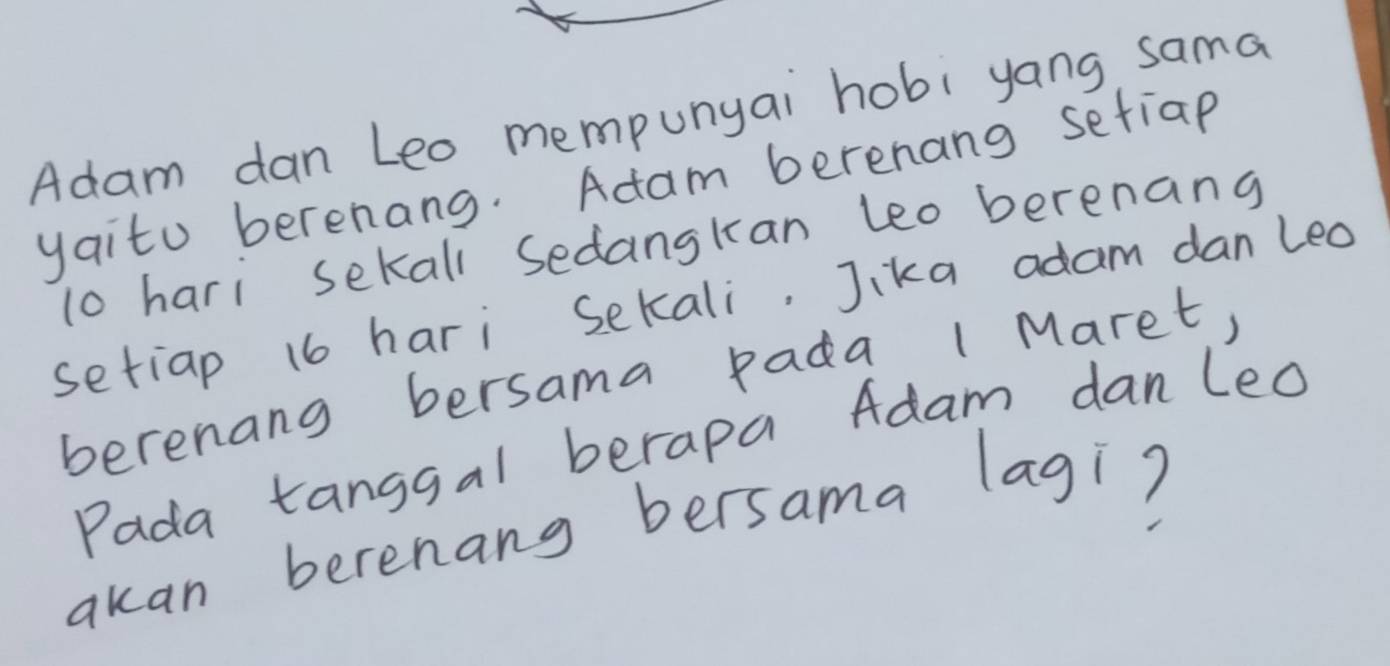 Adam dan Leo mempunyai hobi yang sama
yaitu berenang. Adam berenang setiap
10 hari sekali sedangkan Leo berenang
setiap 16 hari sekali. Jika adam dan Leo
berenang bersama pada 1 Maret,
Pada tanggal berapa Adam dan Leo
akan berenang bersama lagi?